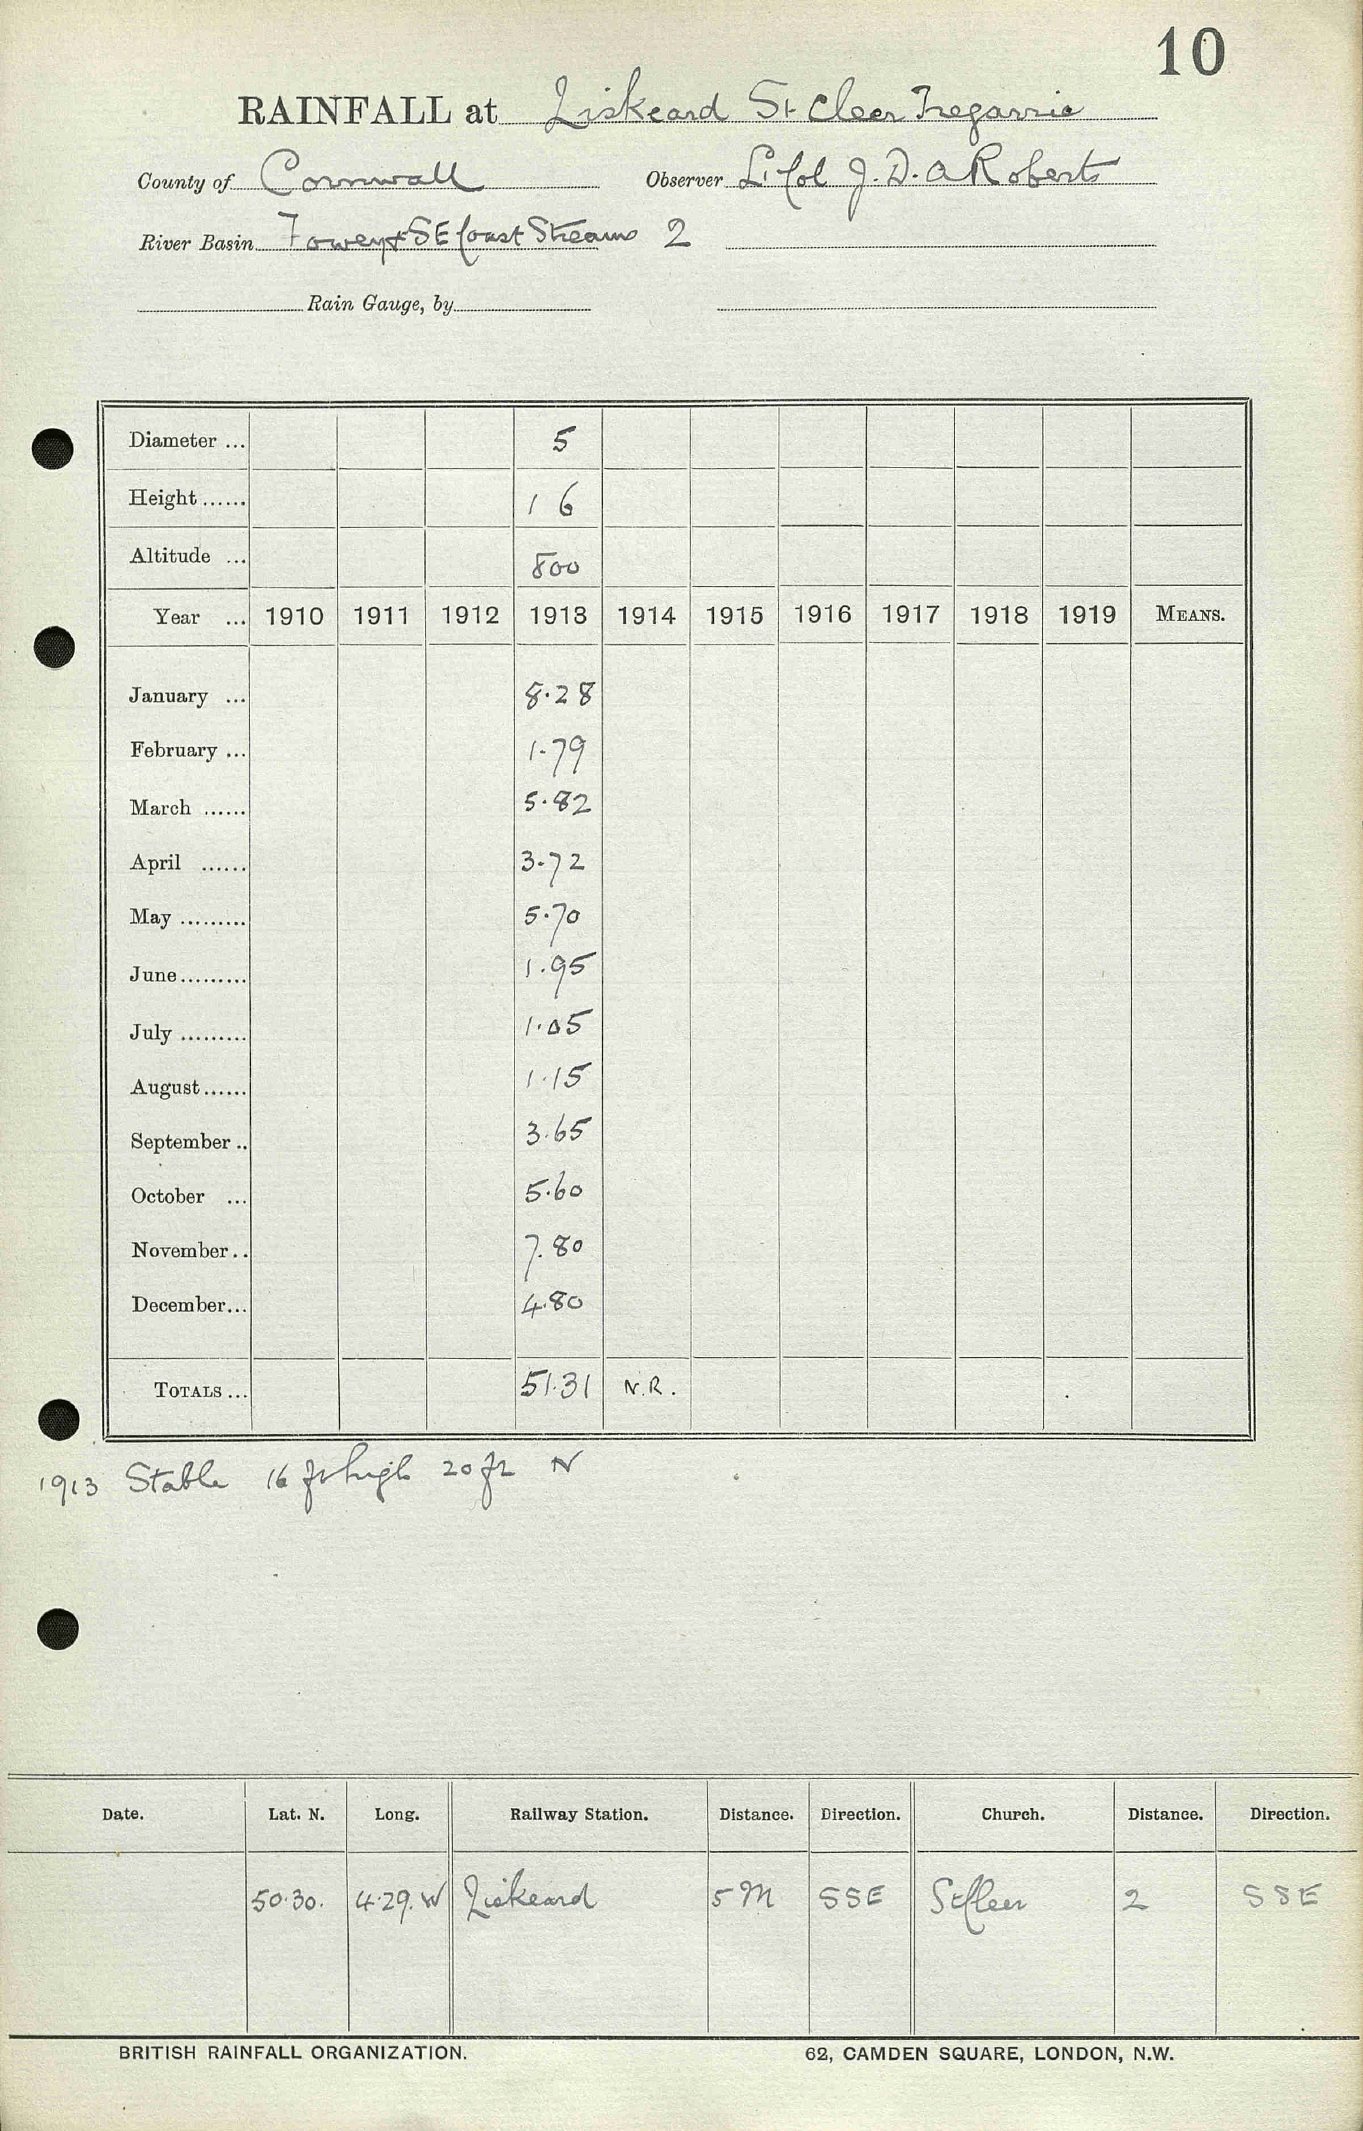 10
RAINFALL at Liskeard St Cleer Tregarrie
County of Cornwall Observer Lt Col J. D. A Roberts
River Basin Fowey & SE Coast Streams 2
Rain Gauge, by
Diameter ... 5
Height ...... 1 6
Altitude ... 800
Year ... 1910 1911 1912 1913 1914 1915 1916 1917 1918 1919 MEANS.
January ... 8.28
February ... 1.79
March ...... 5.82
April ...... 3.72
May ......... 5.70
June ......... 1.95
July ......... 1.05
August ...... 1.15
September .. 3.65
October ... 5.60
November .. 7.80
December... 4.80
TOTALS ... 51.31 N.R.
1913 Stable 16 ft high 20 ft N
Date. Lat. N. Long. Railway Station. Distance. Direction. Church. Distance. Direction.
50.30. 4.29.W Liskeard 5 M SSE St Cleer 2 SSE
BRITISH RAINFALL ORGANIZATION. 62, CAMDEN SQUARE, LONDON, N.W.